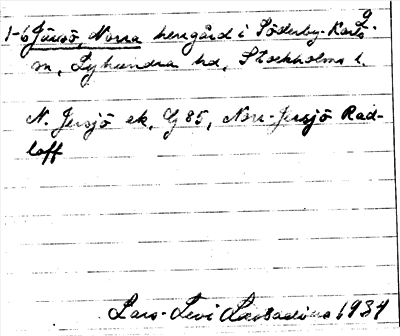 9
1-6 Jursö, Norra herrgård i Söderby-Karls
m, Lyhundra hd, Stockholms l.
N. Jersjö ek, Gj 85, Norr-Jersjö Rad-
loff
Lars-Levi Læstadius 1934